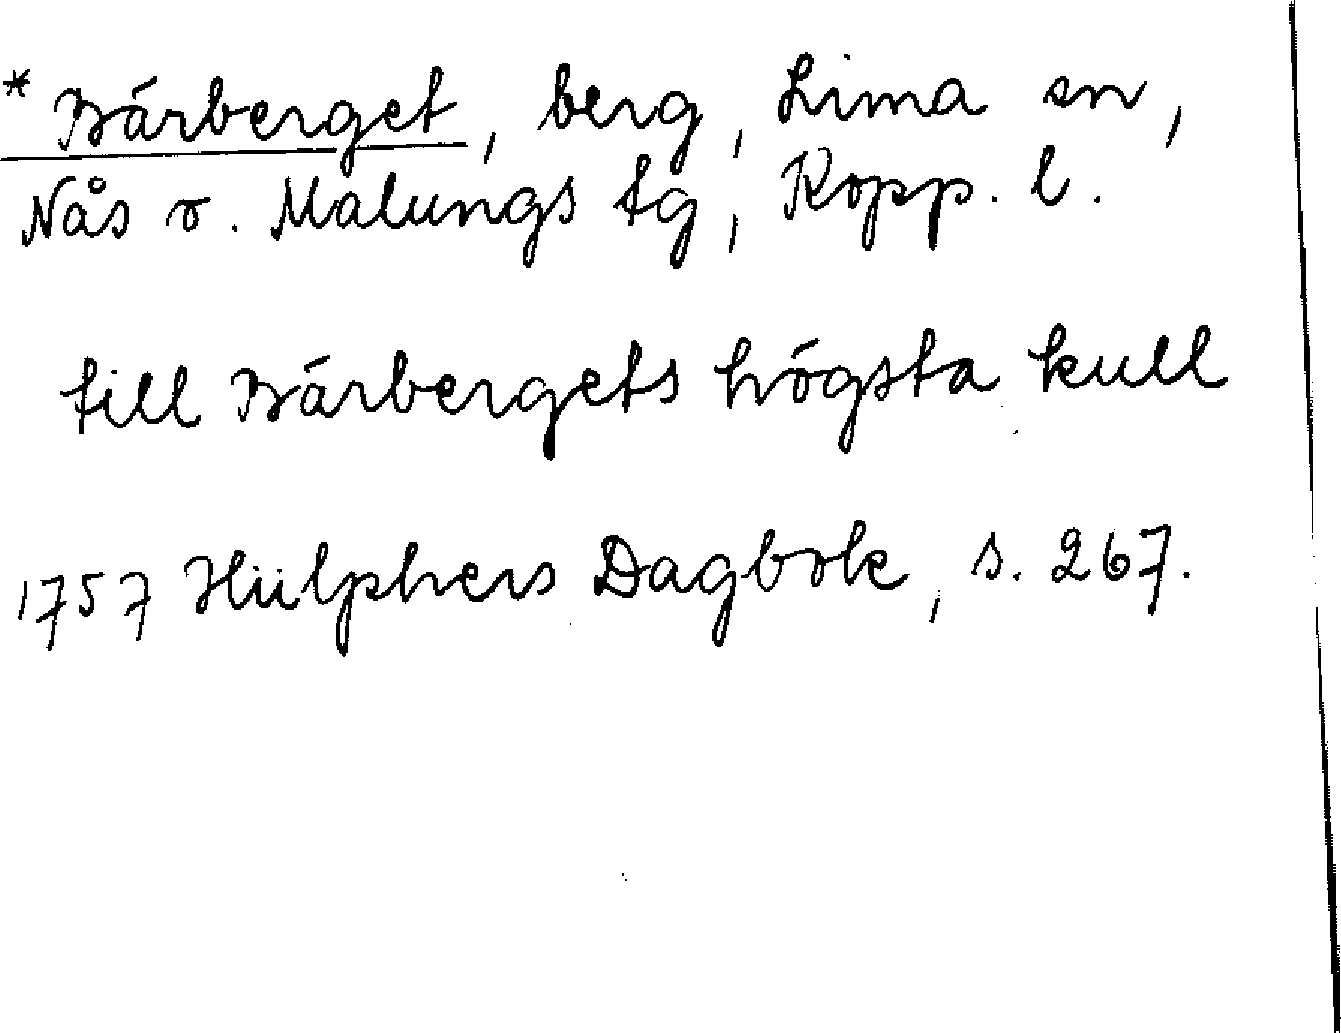 * Bärberget, berg, Lima sn,
Nås o. Malungs tg, Kopp. l.
till Bärbergets högsta kull
1757 Hülphers Dagbok, s. 267.